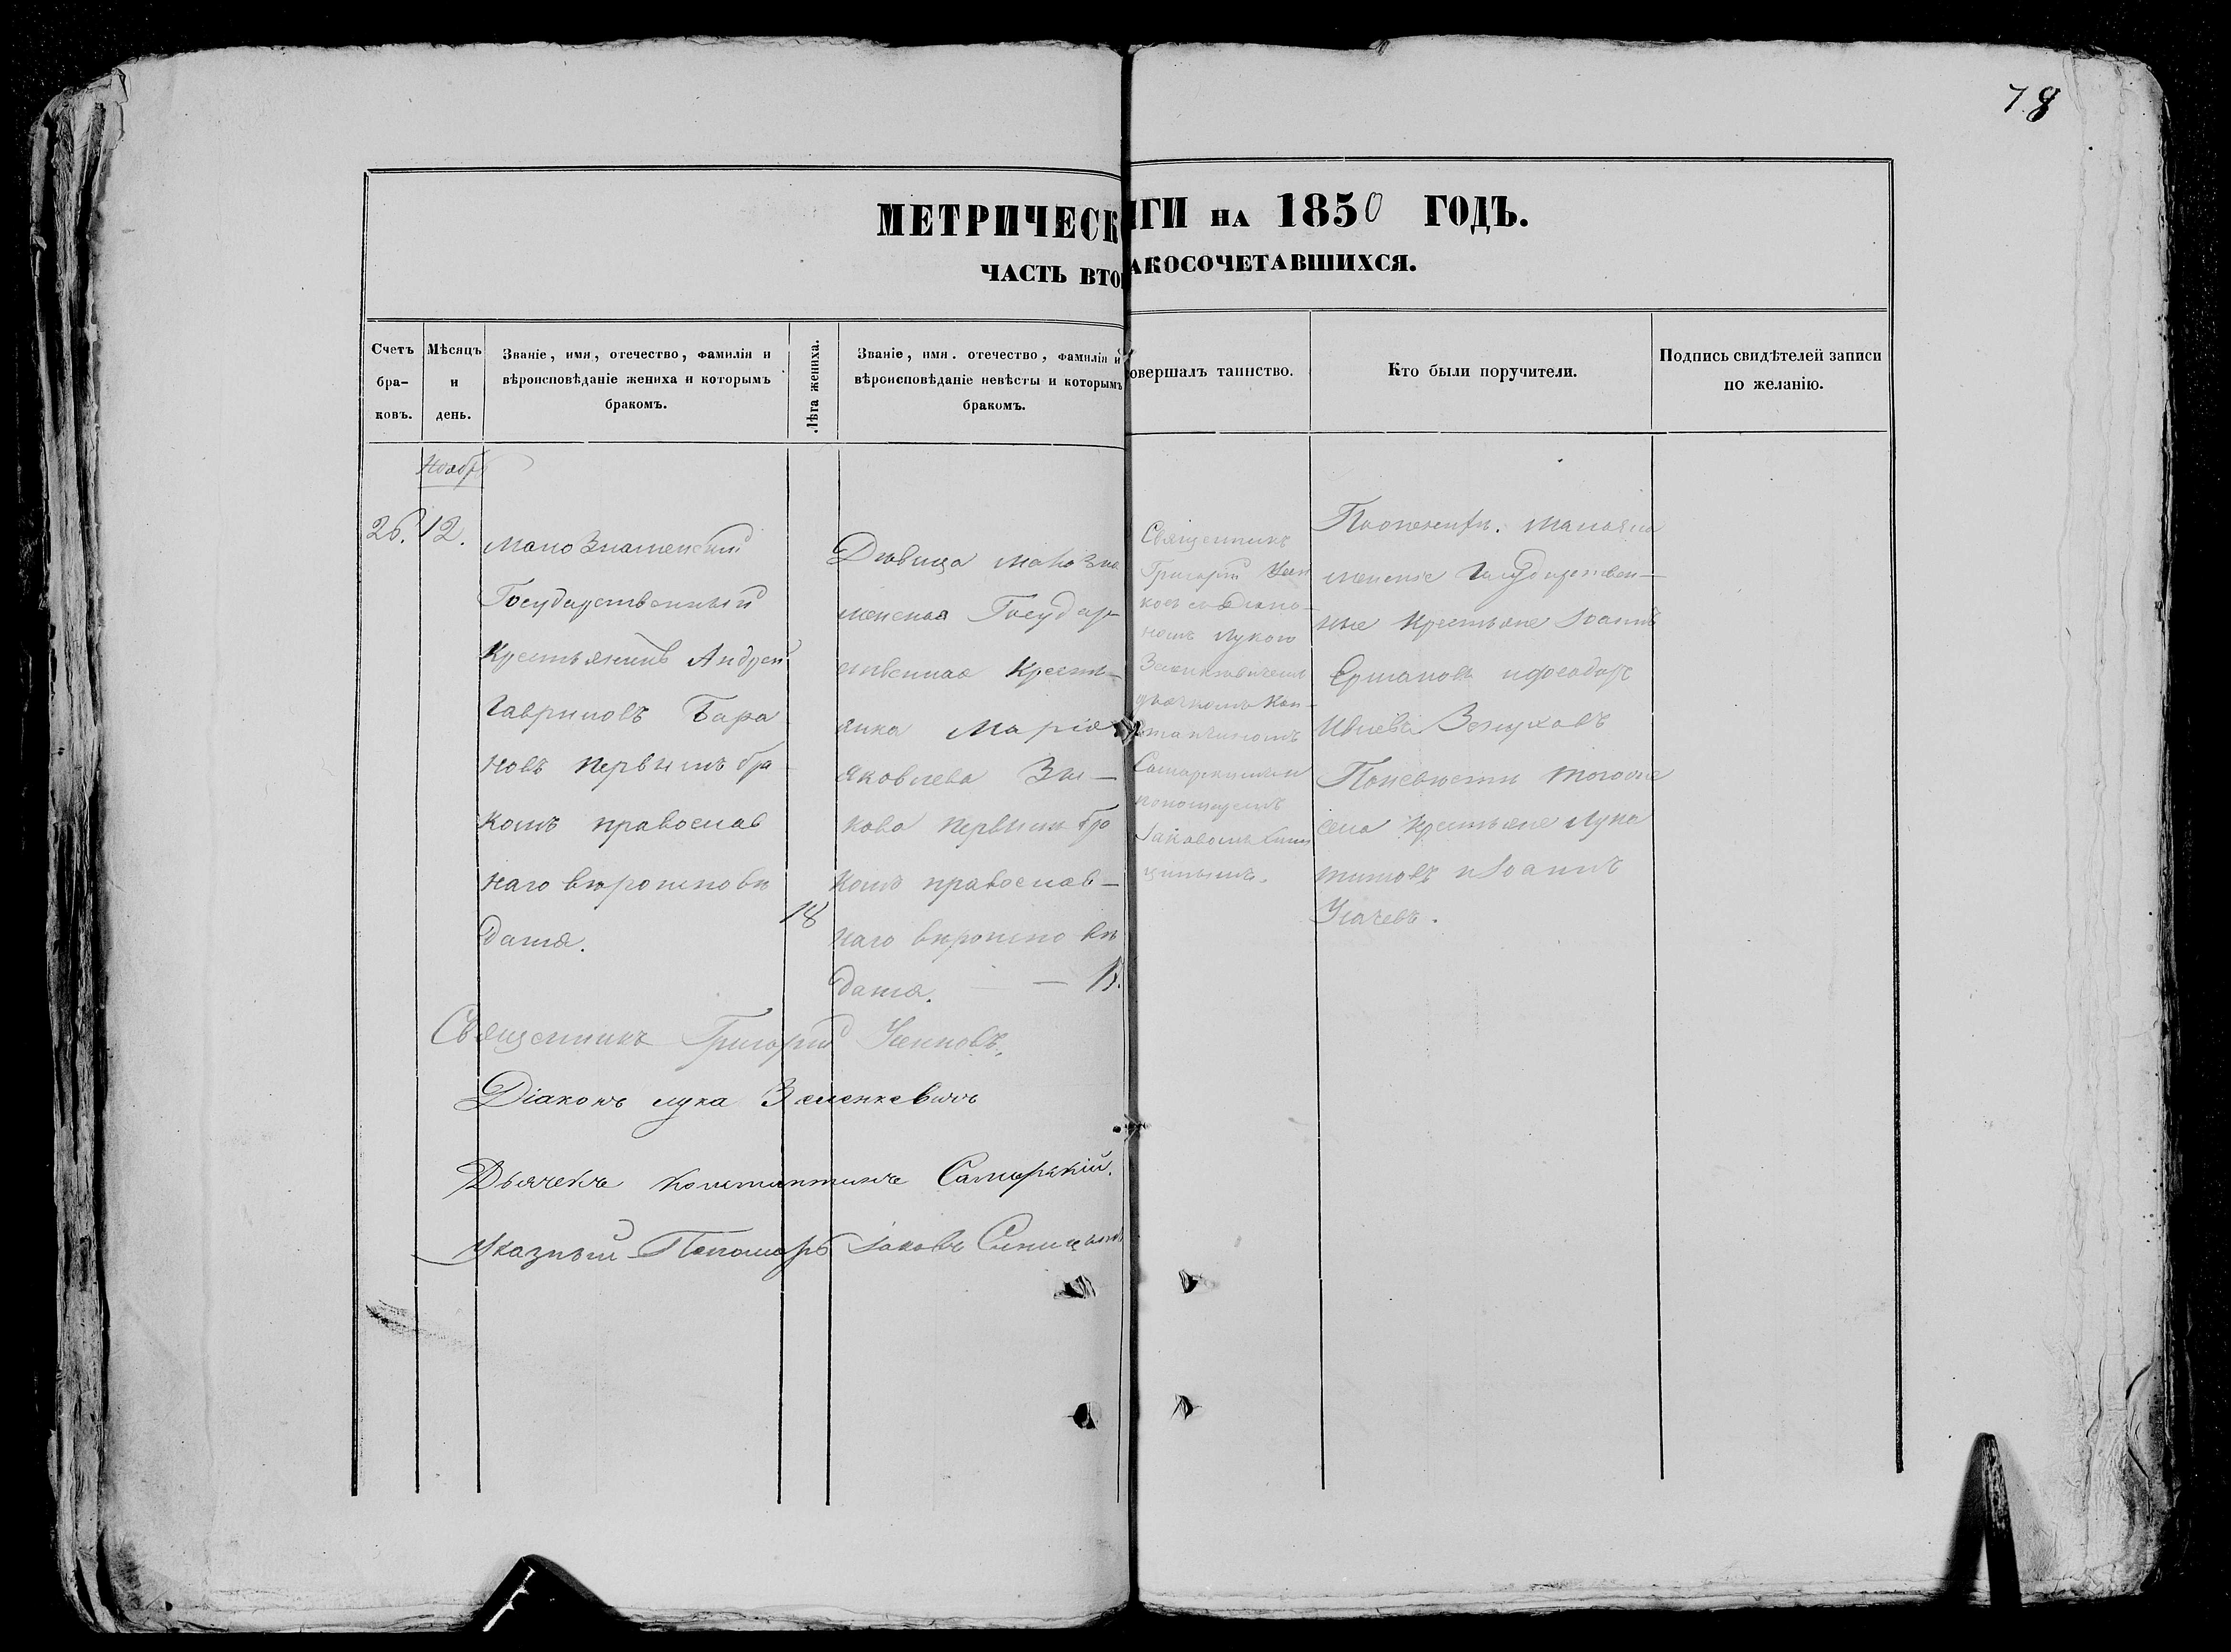 78
МЕТРИЧЕСК ГИ НА 1850 ГОДЪ.
ЧАСТЬ ВТО АКОСОЧЕТАВШИХСЯ.
Счетъ бра-ковъ.
Мѣсяцъ и день.
Званіе, имя, отечество, фамилія и
вѣроисповѣданіе жениха и которымъ
бракомъ.
Лѣта жениха.
Званіе, имя. отечество, фамилія и
вѣроисповѣданіе невѣсты и которымъ
бракомъ.
овершалъ таинство.
Кто были поручители.
Подпись свидѣтелей записи
по желанію.
Ноябр
26. 12.
Мало Знаменский
Государственный
Крестьянинъ Андрей
Гавриловъ Бара
новъ первымъ бра
комъ православ
наго вѣроисповѣ
данія.
18
Дѣвица Мало Зна
менская Государ
ственная Кресть-
янка Марія
Яковлева
кова первымъ бра
комъ православ-
наго вѣроиспо вѣ
данія.
Священникъ
Григорій
Діако-
номъ Лукою
дьячкомъ Кон-
стантиномъ
Самарскимъ и
пономаремъ
Іаковомъ Сини
цынымъ.
По женихѣ. Малозна
менскіе Государствен-
ные Крестьяне Іоаннъ
Ермаковъ и Феодоръ
По невѣсти тогоже
села Крестьяне Лука
Титовъ и Іоаннъ
Усачевъ.
Священникъ Григорій
Діаконъ Лука Зеленкевичъ
Дьячекъ Константинъ Самарскій.
Указный Пономарь Іаковъ Синицынъ